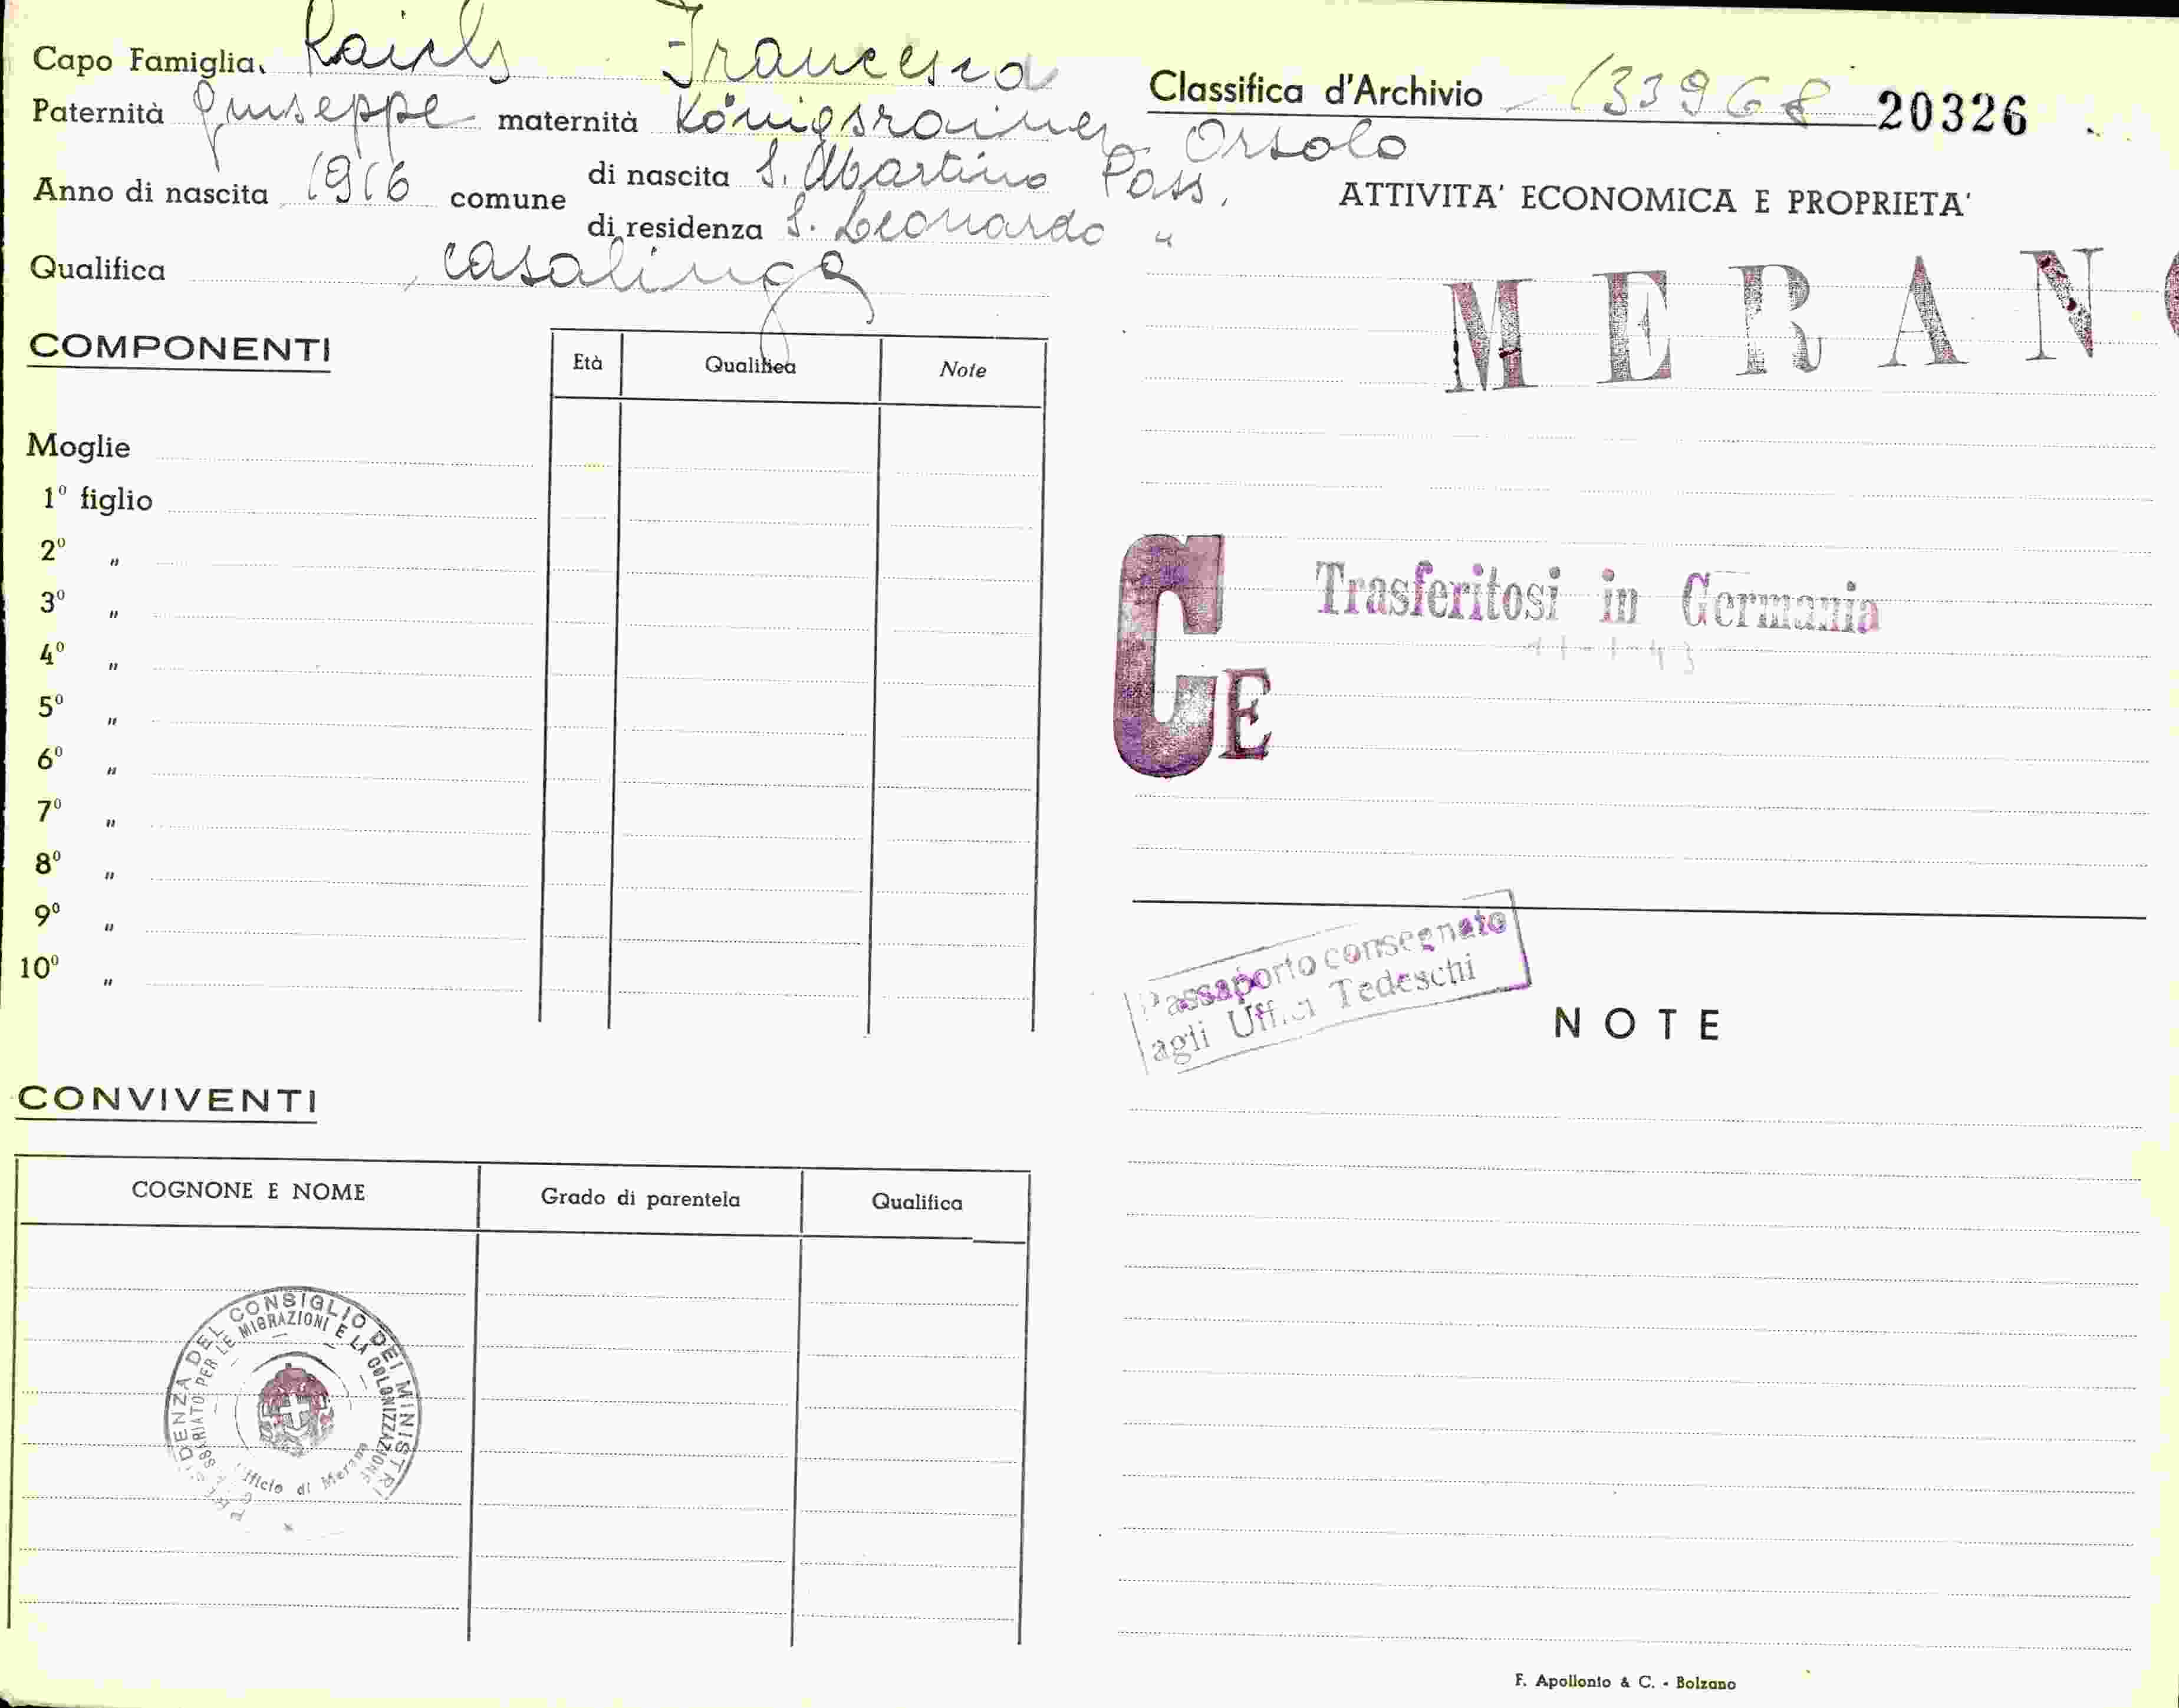 Capo Famiglia Raich Francesca
Paternità Giuseppe maternità Königsrainer Orsola
Anno di nascita 1916 comune di nascita S. Martino Pass.
di residenza S. Leonardo "
Qualifica casalinga
COMPONENTI
Età Qualifica Note
Moglie
1º figlio
2º "
3º "
4º "
5º "
6º "
7º "
8º "
9º "
10º "
CONVIVENTI
COGNONE E NOME Grado di parentela Qualifica
DENZA DEL CONSIGLIO DEI MINISTRI
SSARIATO PER LE MIGRAZIONI E LA COLONIZZAZIONE
Ufficio di Merano
Classifica d'Archivio 133968 20326
ATTIVITA' ECONOMICA E PROPRIETA'
MERANO
CE
Trasferitosi in Germania
11-1-43
Passaporto consegnato
agli Uffici Tedeschi
NOTE
F. Apollonio & C. - Bolzano